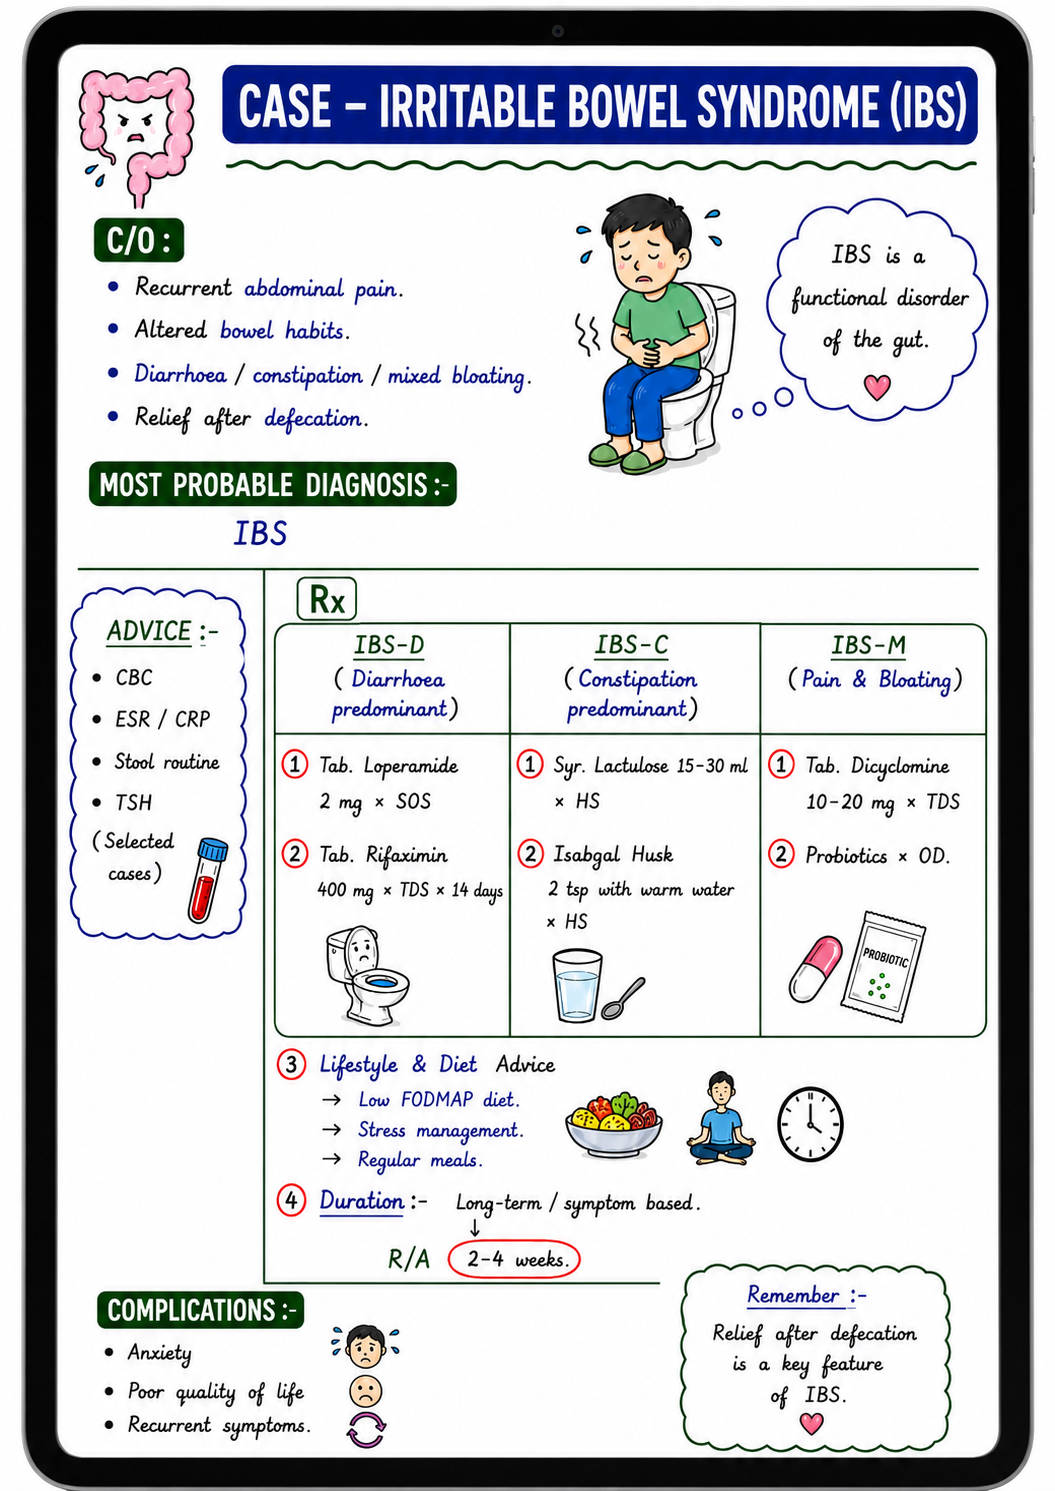 CASE – IRRITABLE BOWEL SYNDROME (IBS)
C/O :
• Recurrent abdominal pain.
• Altered bowel habits.
• Diarrhoea / constipation / mixed bloating.
• Relief after defecation.
IBS is a
functional disorder
of the gut.
MOST PROBABLE DIAGNOSIS :-
IBS
ADVICE :-
• CBC
• ESR / CRP
• Stool routine
• TSH
(Selected
cases)
Rx
IBS-D
(Diarrhoea
predominant)
1 Tab. Loperamide
2 mg × SOS
2 Tab. Rifaximin
400 mg × TDS × 14 days
IBS-C
(Constipation
predominant)
1 Syr. Lactulose 15-30 ml
× HS
2 Isabgal Husk
2 tsp with warm water
× HS
IBS-M
(Pain & Bloating)
1 Tab. Dicyclomine
10-20 mg × TDS
2 Probiotics × OD.
PROBIOTIC
3 Lifestyle & Diet Advice
→ Low FODMAP diet.
→ Stress management.
→ Regular meals.
4 Duration :- Long-term / symptom based.
↓
R/A 2-4 weeks.
COMPLICATIONS :-
• Anxiety
• Poor quality of life
• Recurrent symptoms.
Remember :-
Relief after defecation
is a key feature
of IBS.